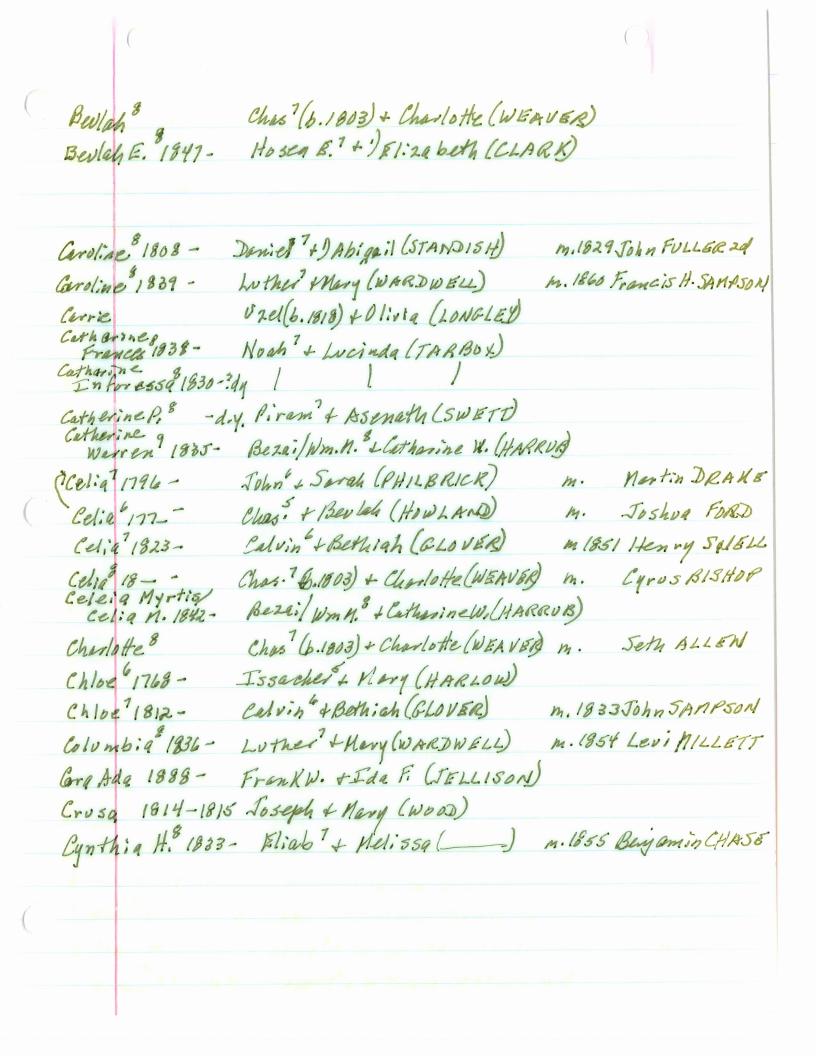 Beulah⁸ Chas⁷ (b.1803) + Charlotte (WEAVER)
Beulah E.⁸ 1847- Hosea E.⁷ + 1) Elizabeth (CLARK)
Caroline⁸ 1808- Daniel⁷ + 1) Abigail (STANDISH) m.1829 John FULLER 2d
Caroline⁸ 1839- Luther⁷ + Mary (WARDWELL) m.1860 Francis H. SAMPSON
Carrie Uzel (b.1818) + Olivia (LONGLEY)
Catharine⁸
Frances 1838- Noah⁷ + Lucinda (TARBOX)
Catharine
Inforessa⁸ 1830-?dy | | |
Catherine P.⁸ -d.y. Piram⁷ + Asenath (SWETT)
Catherine
Warren⁹ 1835- Bezai/Wm.N.⁸ + Catharine W. (HARRUB)
Celia⁷ 1796- John⁶ + Sarah (PHILBRICK) m. Martin DRAKE
Celia⁶ 177_- Chas.⁵ + Beulah (HOWLAND) m. Joshua FORD
Celia⁷ 1823- Calvin⁶ + Bethiah (GLOVER) m 1851 Henry
Celia⁸ 18-- - Chas.⁷ (b.1803) + Charlotte (WEAVER) m. Cyrus BISHOP
Celeia Myrtis/
Celia N. 1842- Bezai/Wm N.⁸ + Catharine W. (HARRUB)
Charlotte⁸ Chas⁷ (b.1803) + Charlotte (WEAVER) m. Seth ALLEN
Chloe⁶ 1768- Issacher⁵ + Mary (HARLOW)
Chloe⁷ 1812- Calvin⁶ + Bethiah (GLOVER) m.1833 John SAMPSON
Columbia⁸ 1836- Luther⁷ + Mary (WARDWELL) m.1854 Levi MILLETT
Cora Ada 1888- Frank W. + Ida F. (JELLISON)
Crusa 1814-1815 Joseph + Mary (WOOD)
Cynthia H.⁸ 1833- Eliab⁷ + Melissa (______) m.1855 Benjamin CHASE